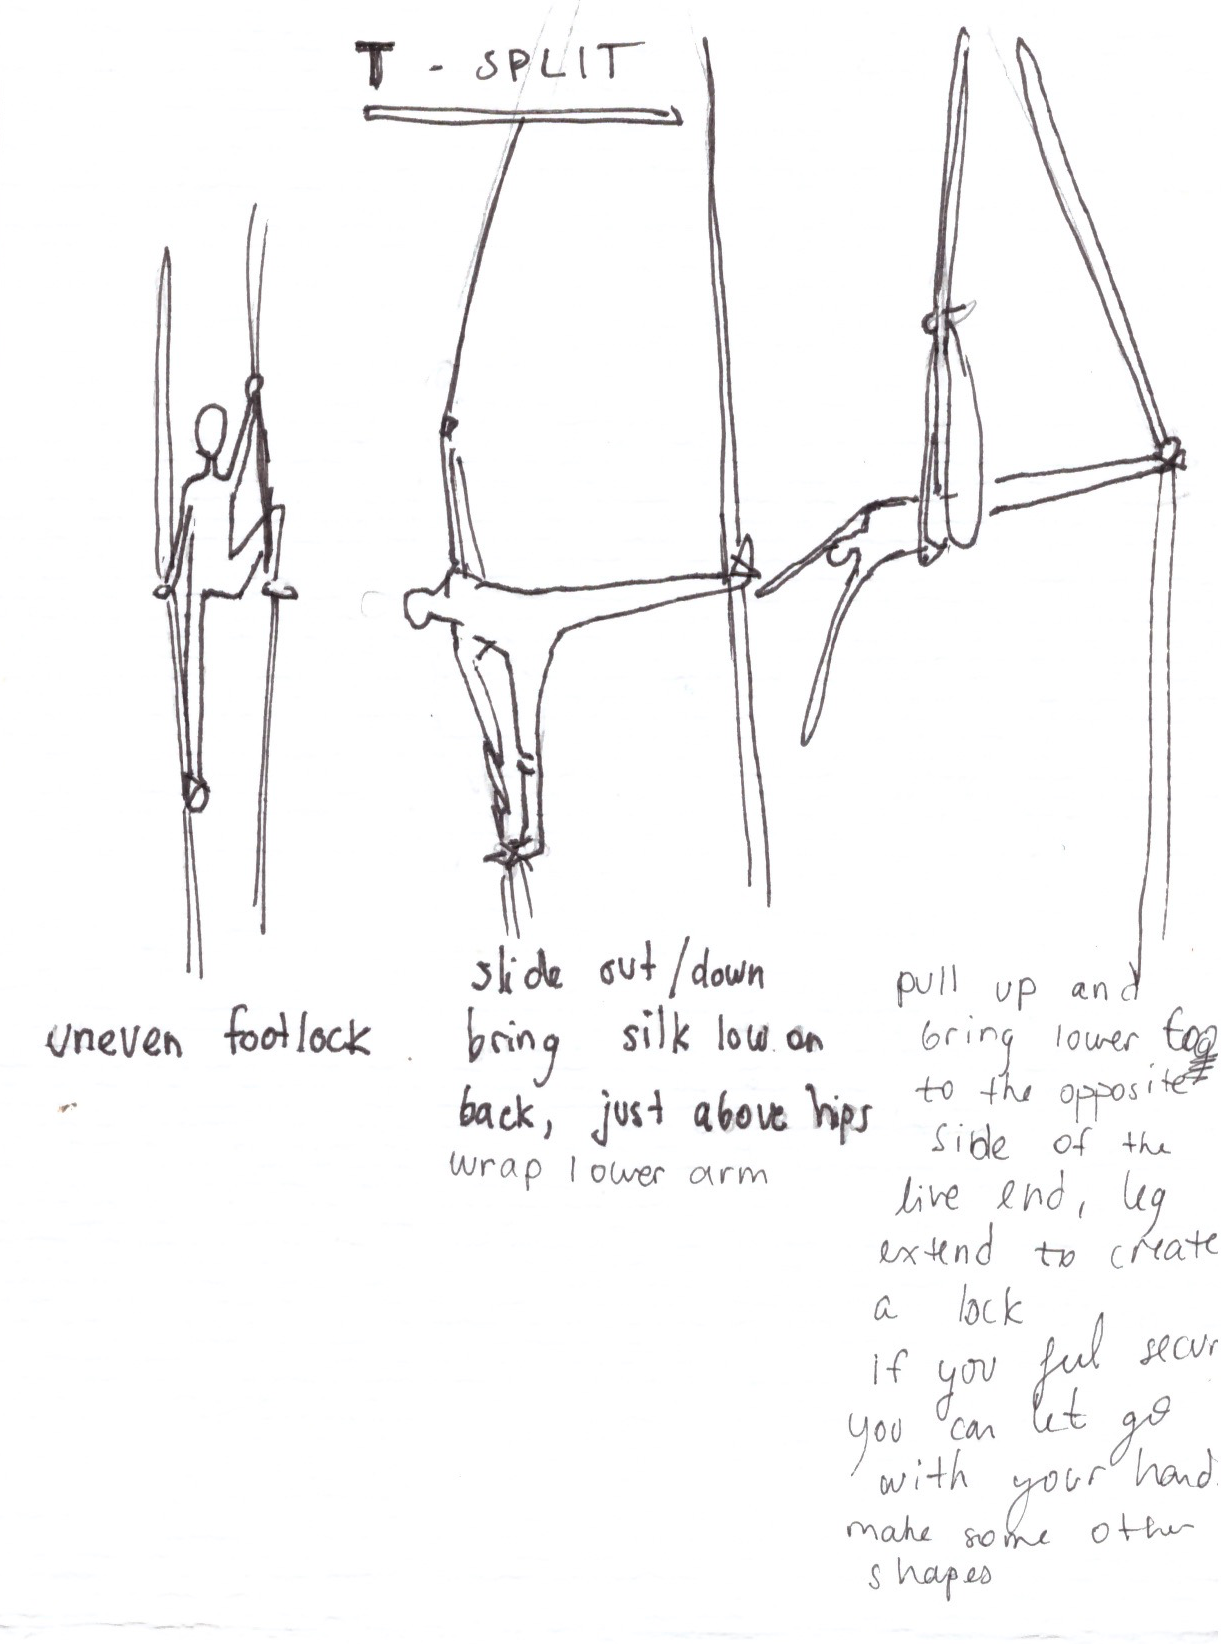 T - SPLIT
uneven footlock
slide out/down
bring silk low on
back, just above hips
wrap lower arm
pull up and
bring lower
to the opposite
side of the
live end, leg
extend to create
a lock
if you feel secur
you can let go
with your hand
make some other
shapes